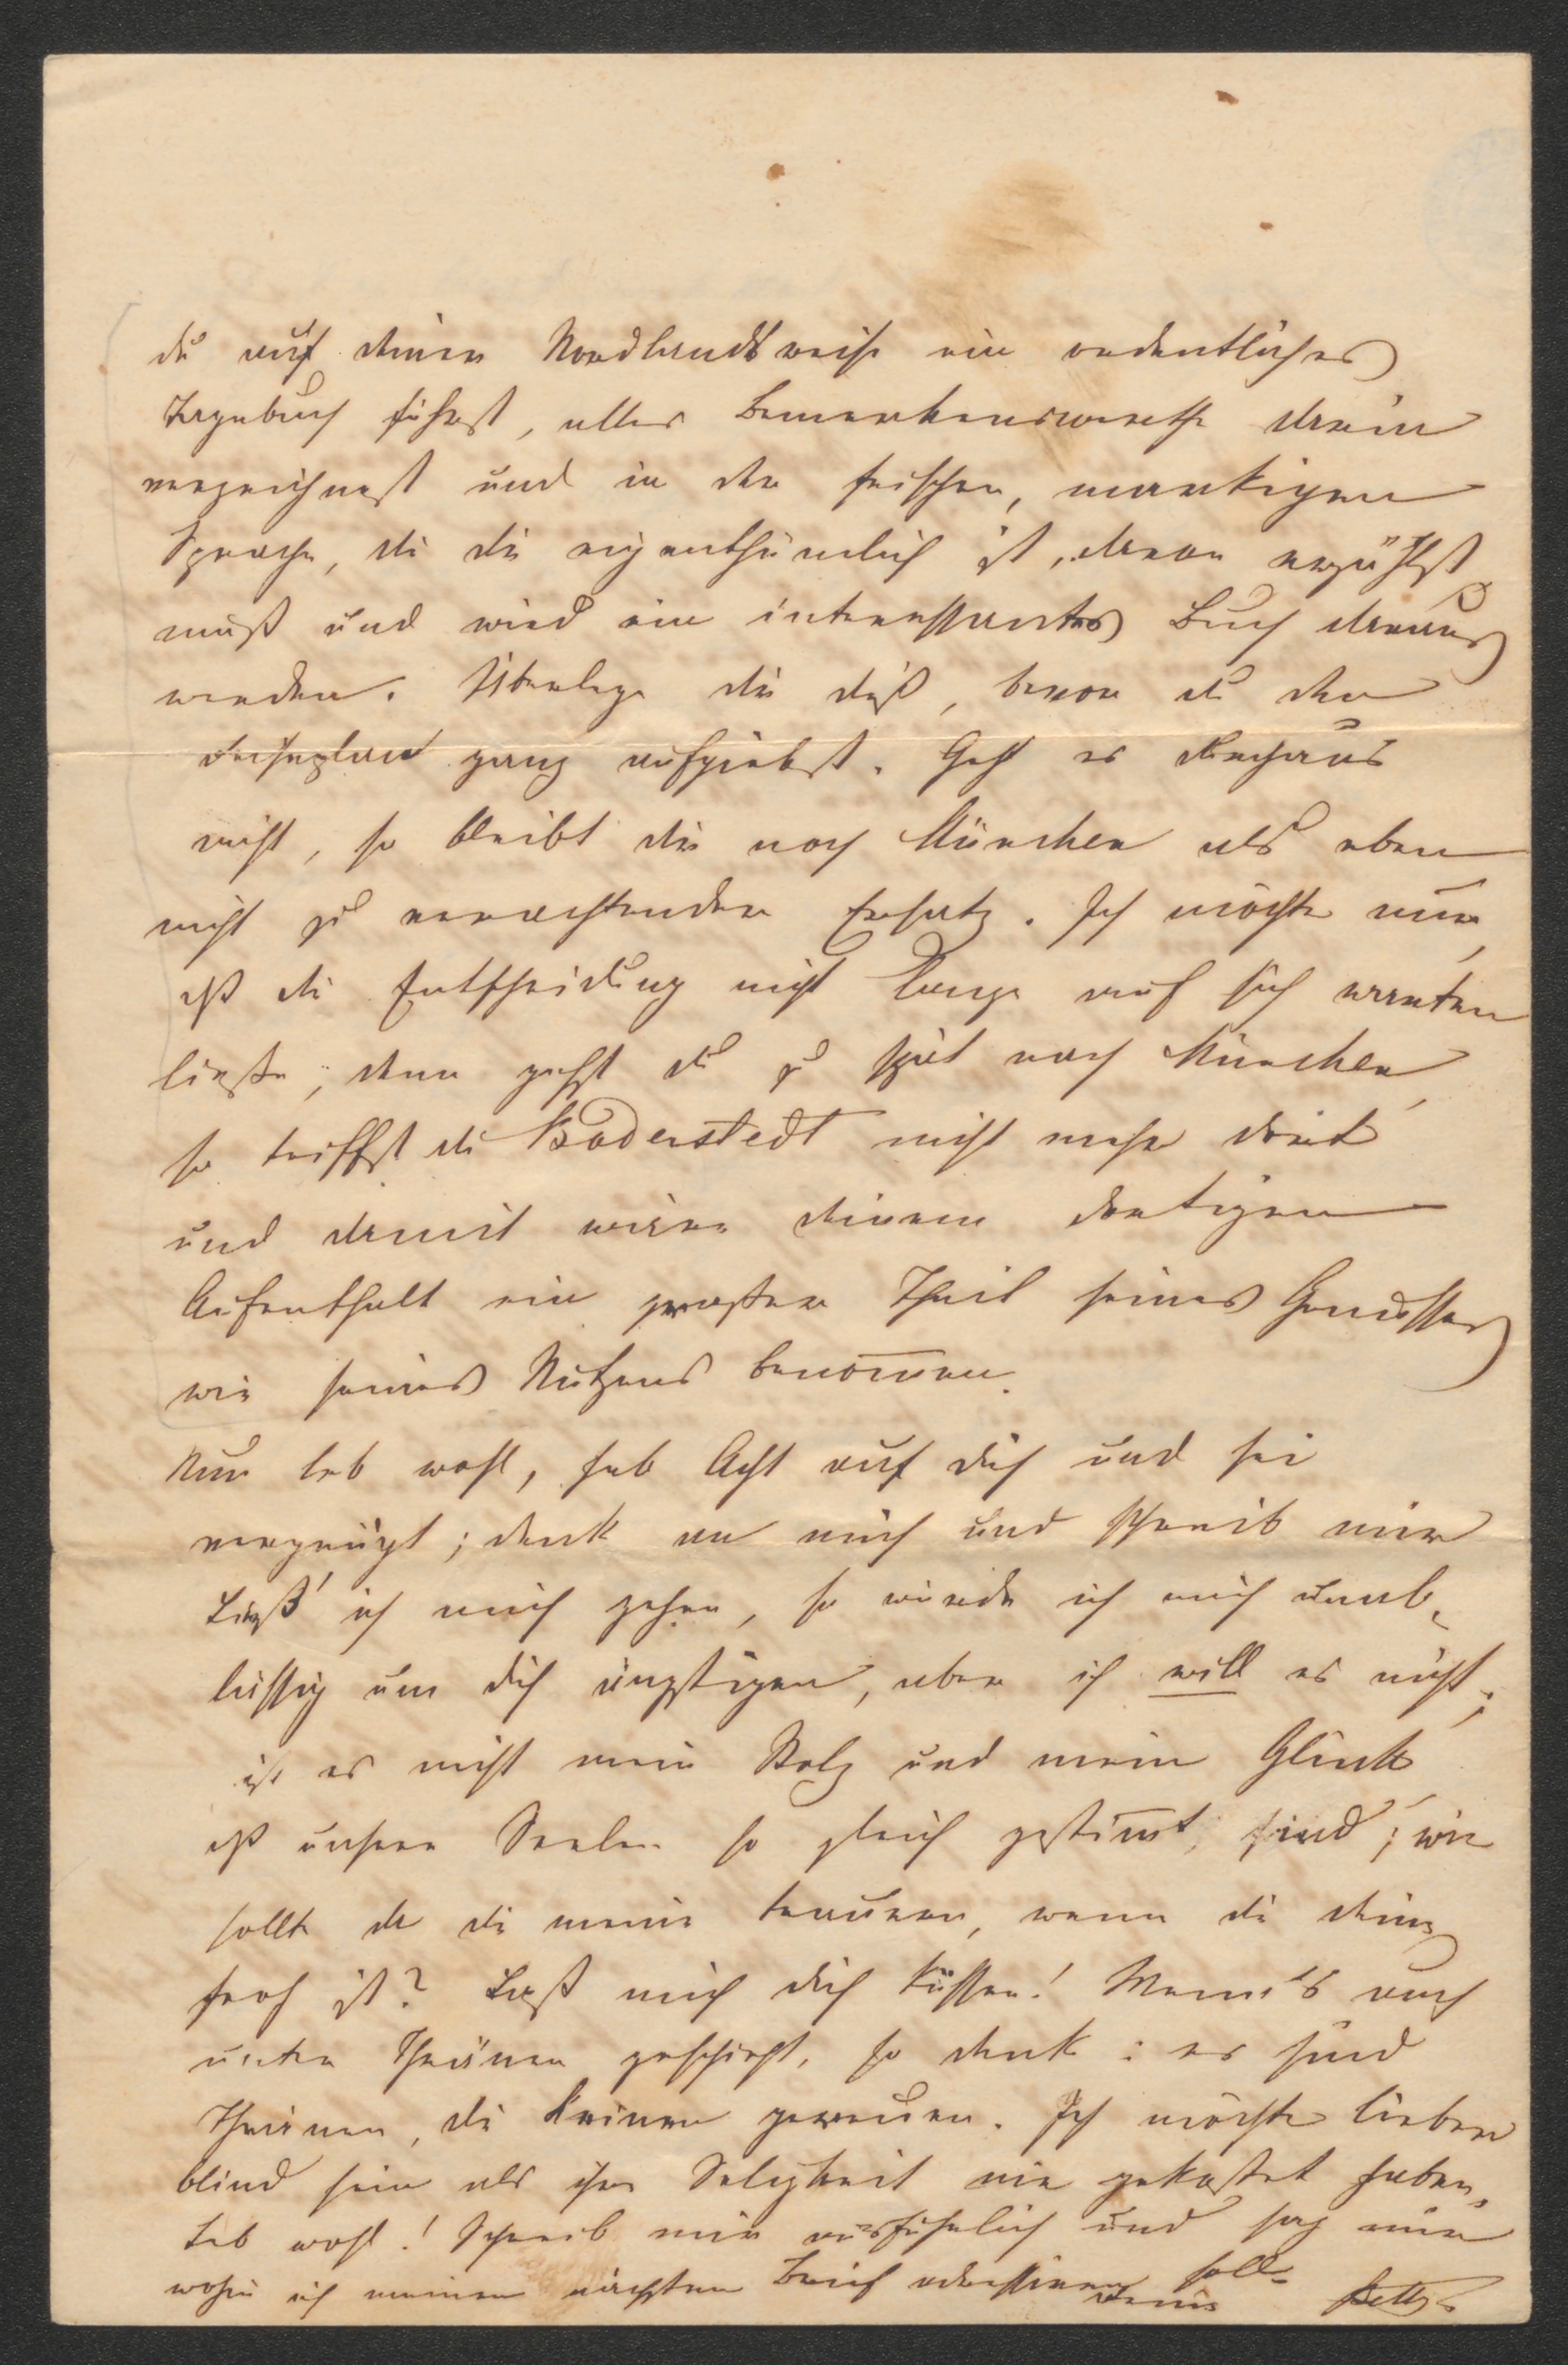 du auf deiner Nordlandsreise ein ordentliches
Tagebuch führst, alles Bemerkenswerthe drein
verzeichnest und in der frischen, markigen
Sprache, die dir eigenthümlich ist, davon erzählst
muß und wird ein interessantes Buch daraus
werden. Überlege dir dieß, bevor du den
Reiseplan ganz aufgiebst. Geht es durchaus
nicht, so bleibt dir noch München als eben
nicht zu verachtender Ersatz. Ich möchte nur,
daß die Entscheidung nicht lange auf sich warten
ließe; denn gehst du zu spät nach München,
so triffst du Bodenstedt nicht mehr dort
und damit wäre deinem dortigen
Aufenthalt ein großer Theil seines Genusses
wie seines Nutzens benom̅en.
Nun leb wohl, hab Acht auf dich und sei
vergnügt; denk an mich und schreib mir
Ließ' ich mich gehen, so würde ich mich unab-
lässig um dich ängstigen, aber ich will es nicht;
ist es nicht mein Stolz und mein Glück,
daß unsere Seelen so gleich gestim̅t sind; wie
sollte da die meine trauern, wenn die deine
froh ist? Laß mich dich küssen! Wenn's auch
unter Thränen geschieht, so denk: es sind
Thränen, die keinen gereuen. Ich möchte lieber
blind sein als ihre Seligkeit nie gekostet haben.
Leb wohl! Schreib mir ausführlich und sag mir
wohin ich meinen nächsten Brief adressiren soll.
Deine Betty